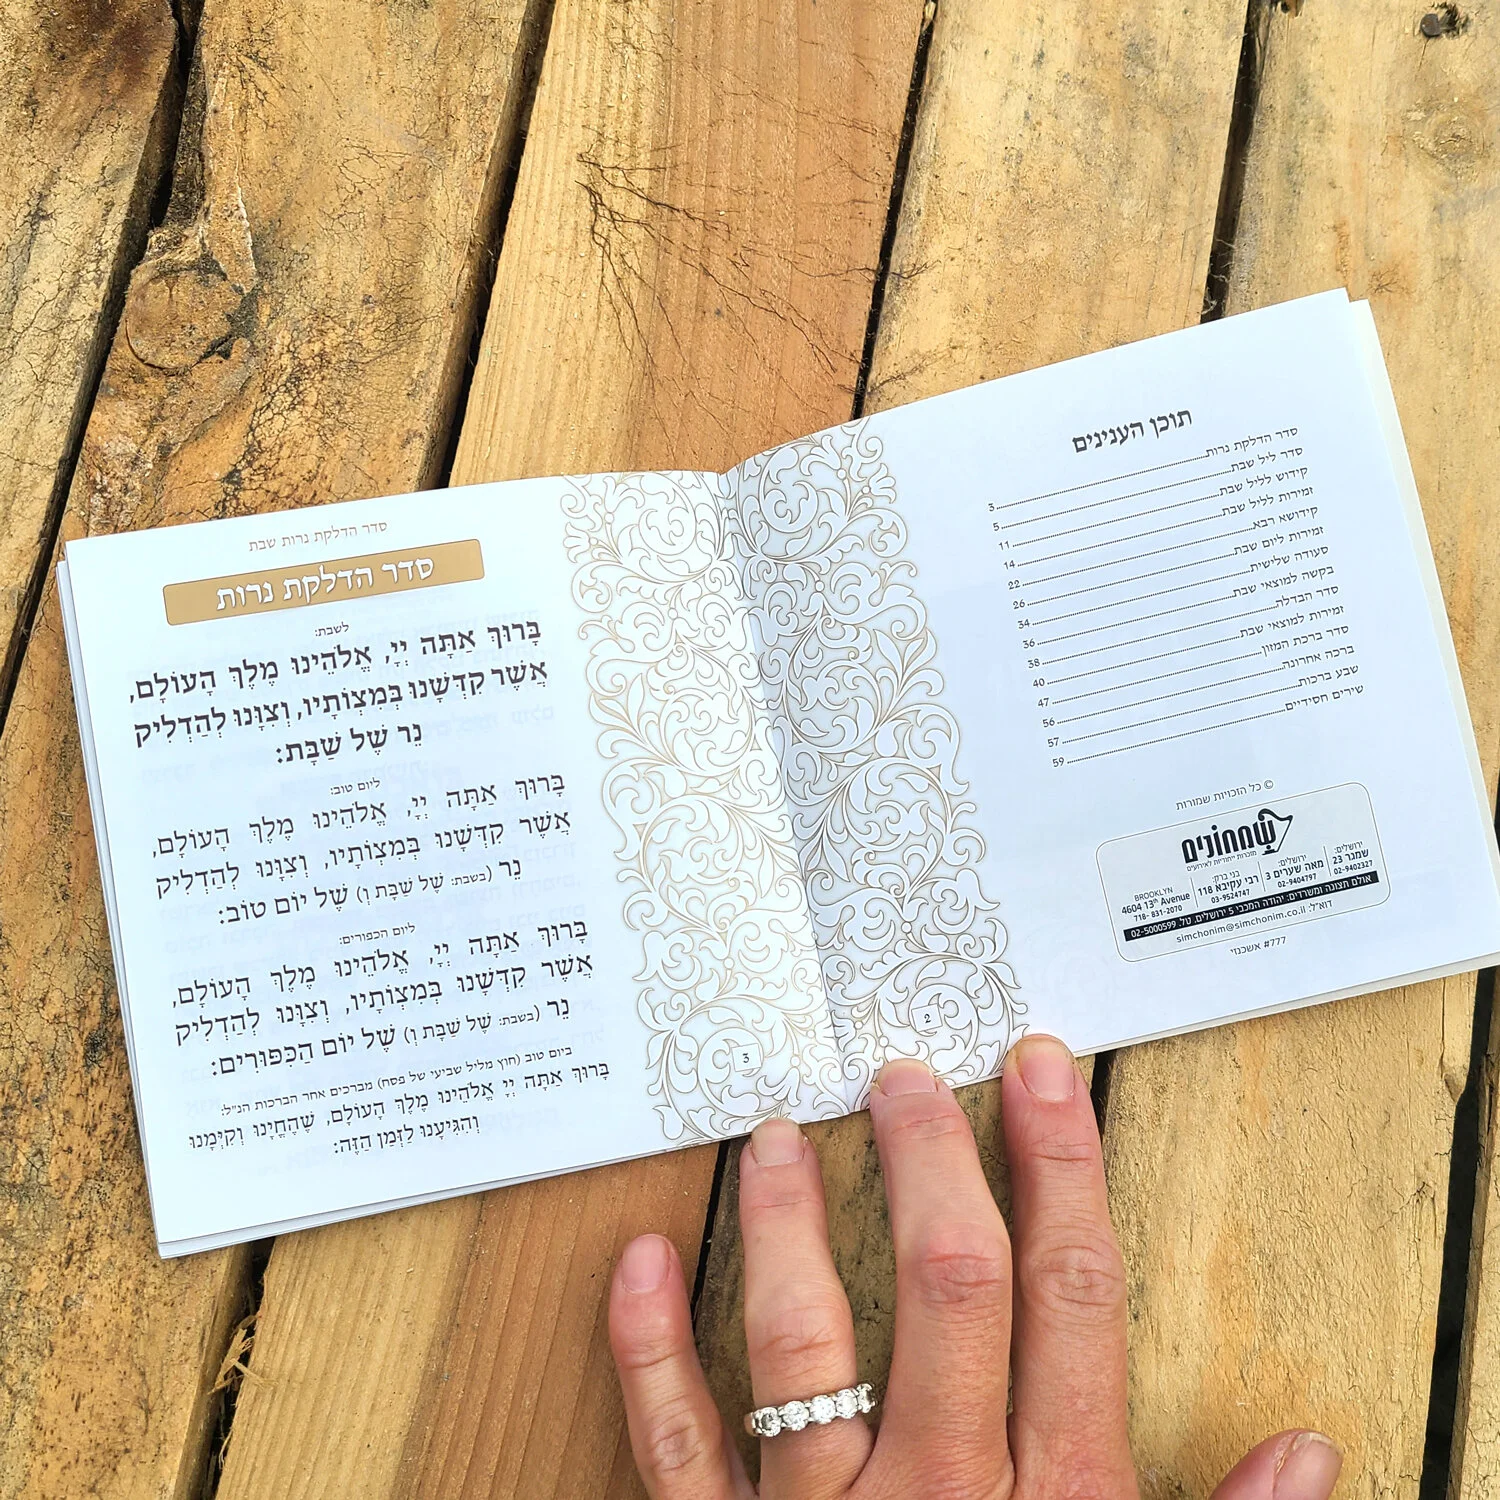 תוכן הענינים
סדר הדלקת נרות 3
סדר ליל שבת 5
קידוש לליל שבת 11
זמירות לליל שבת 14
קידושא רבא 22
זמירות ליום שבת 26
סעודה שלישית 34
בקשה למוצאי שבת 36
סדר הבדלה 38
זמירות למוצאי שבת 40
סדר ברכת המזון 47
ברכה אחרונה 56
שבע ברכות 57
שירים חסידיים 59
© כל הזכויות שמורות
שמחונים
מזכרות ייחודיות לאירועים
ירושלים: שמגר 23 02-9402327
ירושלים: מאה שערים 3 02-9404797
בני ברק: רבי עקיבא 118 03-9524747
BROOKLYN 4604 13th Avenue 718- 831-2070
אולם תצוגה ומשרדים: יהודה המכבי 5 ירושלים. טל. 02-5000599
דוא"ל: simchonim@simchonim.co.il
#777 אשכנזי
2
סדר הדלקת נרות שבת
סדר הדלקת נרות
לשבת:
בָּרוּךְ אַתָּה יְיָ, אֱלֹהֵינוּ מֶלֶךְ הָעוֹלָם,
אֲשֶׁר קִדְּשָׁנוּ בְּמִצְוֹתָיו, וְצִוָּנוּ לְהַדְלִיק
נֵר שֶׁל שַׁבָּת:
ליום טוב:
בָּרוּךְ אַתָּה יְיָ, אֱלֹהֵינוּ מֶלֶךְ הָעוֹלָם,
אֲשֶׁר קִדְּשָׁנוּ בְּמִצְוֹתָיו, וְצִוָּנוּ לְהַדְלִיק
נֵר (בשבת: שֶׁל שַׁבָּת וְ) שֶׁל יוֹם טוֹב:
ליום הכפורים:
בָּרוּךְ אַתָּה יְיָ, אֱלֹהֵינוּ מֶלֶךְ הָעוֹלָם,
אֲשֶׁר קִדְּשָׁנוּ בְּמִצְוֹתָיו, וְצִוָּנוּ לְהַדְלִיק
נֵר (בשבת: שֶׁל שַׁבָּת וְ) שֶׁל יוֹם הַכִּפּוּרִים:
ביום טוב (חוץ מליל שביעי של פסח) מברכים אחר הברכות הנ"ל:
בָּרוּךְ אַתָּה יְיָ אֱלֹהֵינוּ מֶלֶךְ הָעוֹלָם, שֶׁהֶחֱיָנוּ וְקִיְּמָנוּ
וְהִגִּיעָנוּ לַזְּמַן הַזֶּה:
3